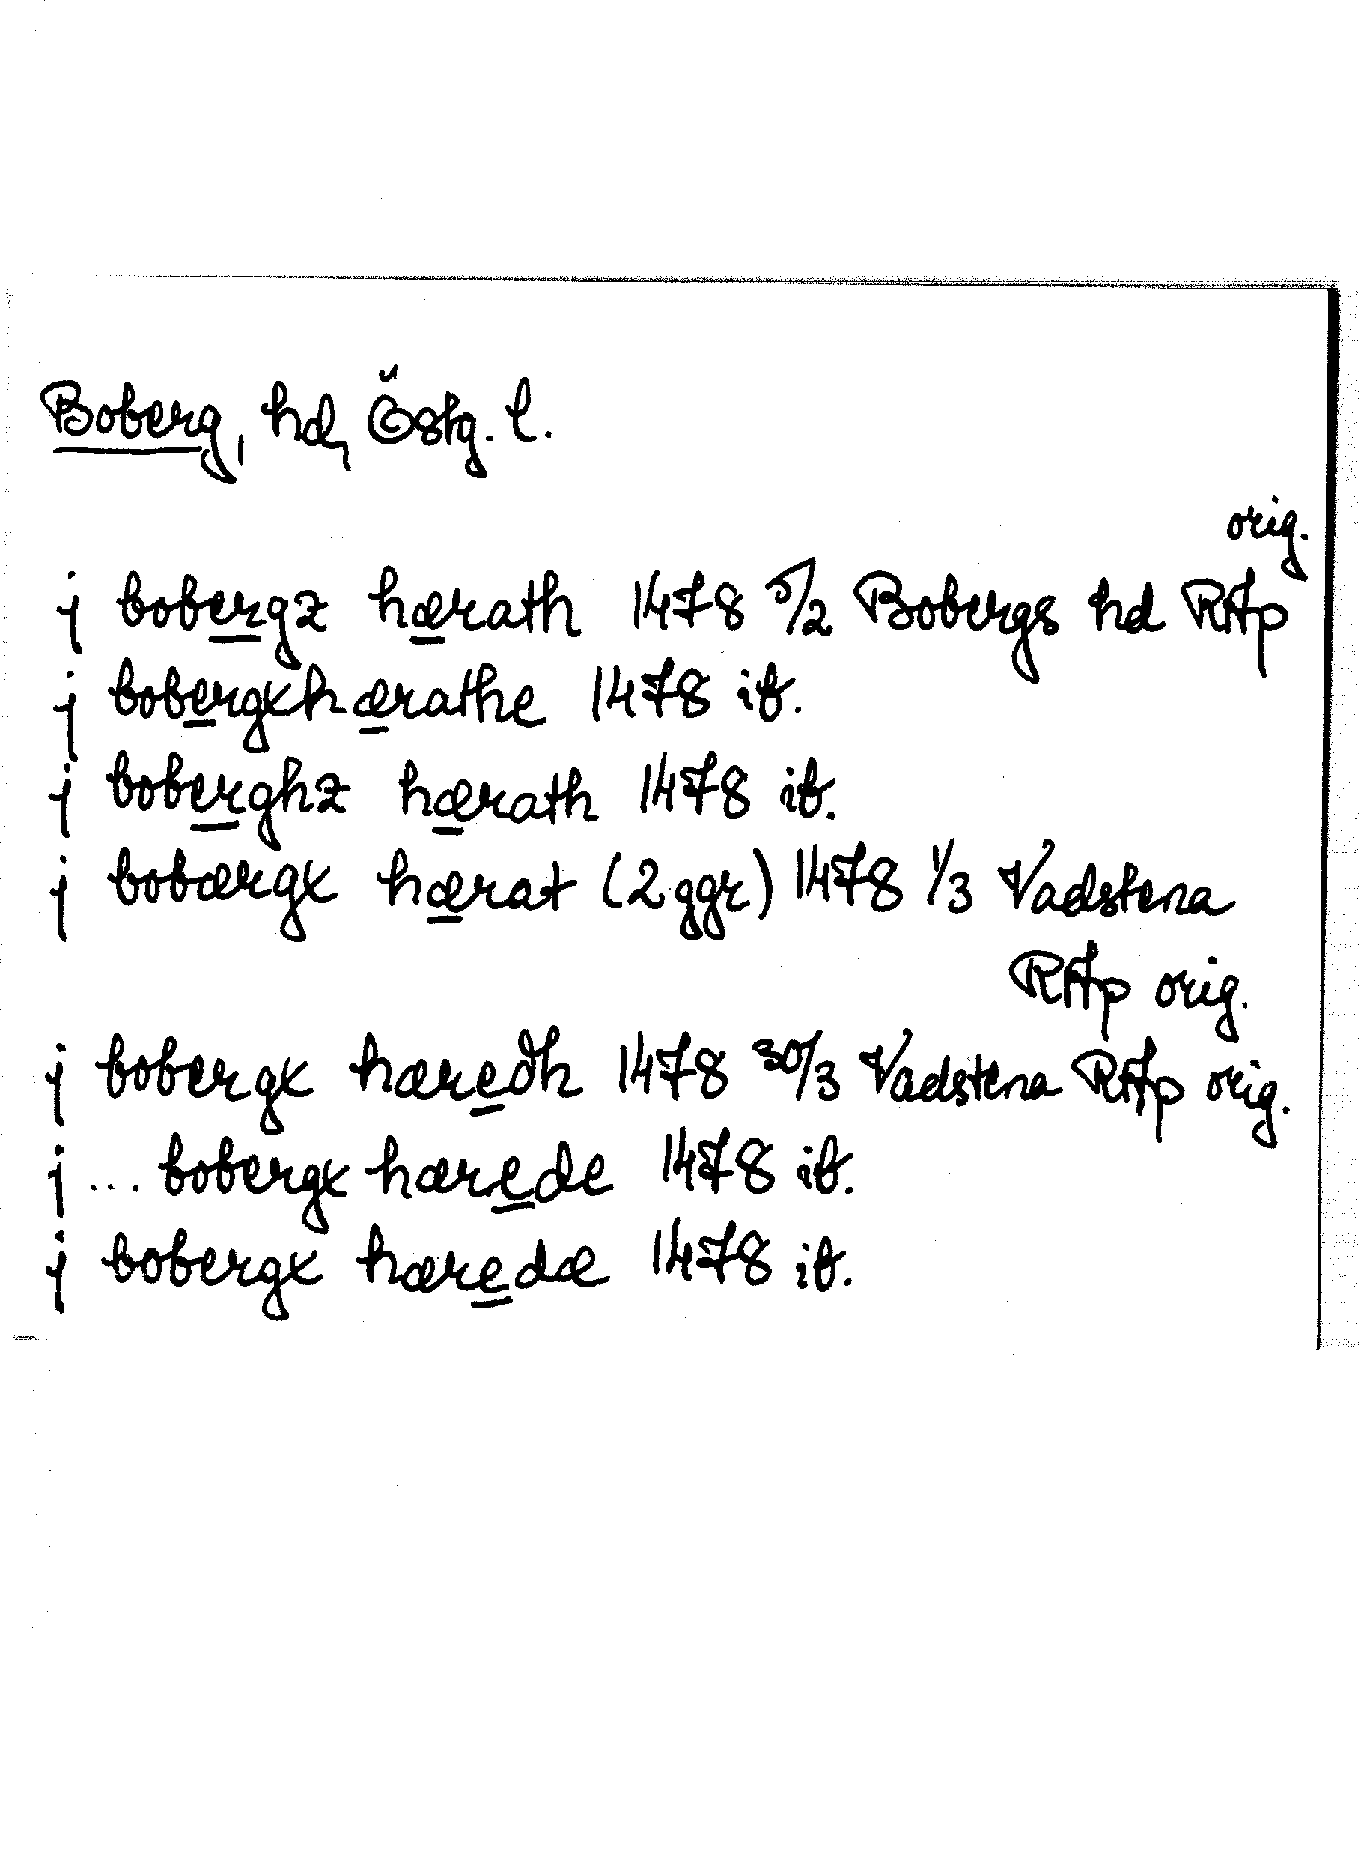 Boberg, hd, Östg. l.
orig.
j bobergz hærath 1478 5/2 Bobergs hd RAp
j bobergxhærathe 1478 ib.
j boberghz hærath 1478 ib.
j bobærgx hærat (2 ggr) 1478 1/3 Vadstena
RAp orig.
j bobergx hæredh 1478 30/3 Vadstena RAp orig.
j ... bobergx hærede 1478 ib.
j bobergx hæredæ 1478 ib.